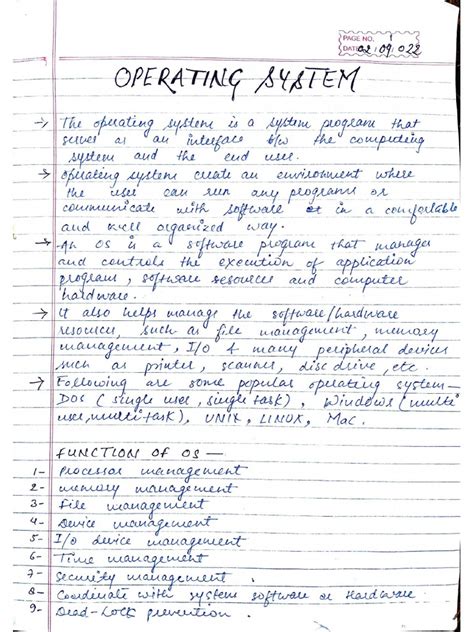 PAGE NO. 1
DATE 02/09/022
OPERATING SYSTEM
→ The operating system is a system program that
serves as an interface b/w the computing
system and the end user.
→ Operating systems create an environment where
the user can run any programs or
communicate with software in a comfortable
and well organized way.
→ An OS is a software program that manages
and controls the execution of application
program, software resources and computer
hardware.
→ It also helps manage the software/hardware
resources, such as file management, memory
management, I/O & many peripheral devices
such as printer, scanner, disc drive, etc.
→ Following are some popular operating system—
DOS (single user, single task), Windows (multi
user, multi task), UNIX, LINUX, Mac.
FUNCTION OF OS —
1- Processor management
2- memory management
3- File management
4- Device management
5- I/O device management
6- Time management
7- Security management
8- Coordinate with system software or Hardware
9- Dead-Lock prevention.